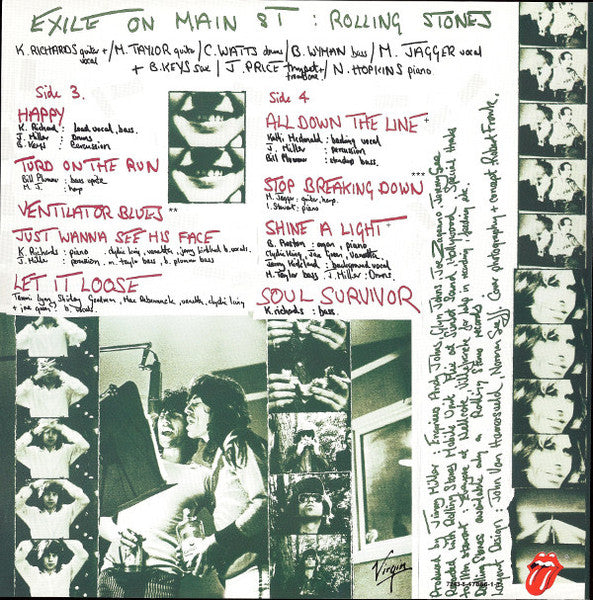 EXILE ON MAIN ST : ROLLING STONES
K. RICHARDS guitr + vocal / M. TAYLOR guitr / C. WATTS drums / B. WYMAN bass / M. JAGGER vocal
+ B. KEYS sax / J. PRICE trumpet + trombone / N. HOPKINS piano
Side 3.
HAPPY
K. Richard : Lead vocal, bass.
J. Miller : Drums
B. Keys : Percussion
TURD ON THE RUN
Bill Plummer : bass
M. J. : harp
VENTILATOR BLUES **
JUST WANNA SEE HIS FACE
K. Richards : piano clydie king, vanetta, jerry kirkland b. vocals.
J. Miller : percussion m. taylor bass, b. plummer bass
LET IT LOOSE
Tammi Lynn, Shirley Goodman, Mac Rebennack, vanetta, clydie king
+ joe green : b. vocals.
Side 4
ALL DOWN THE LINE +
Kathi Mcdonald : backing vocal
J. Miller : percussion
Bill Plummer : standup bass.
STOP BREAKING DOWN ***
M. Jagger : guitar, harp
I. Stewart : piano
SHINE A LIGHT +
B. Preston : organ, piano
Clydie king, Joe Green, Vanetta,
Jerry Kirkland : background vocal
M. Taylor bass J. Miller : Drums
SOUL SURVIVOR
K. richards : bass.
Produced by Jimmy Miller : Engineers Andy Johns, Glyn Johns, Joe Zagarino, Jeremy Gee
Recorded with Rolling Stones Mobile Unit. Mix at Sunset Sound, Hollywood. Special thanks
to Ian stewart
Rolling Stones available only on Rolling Stones records
Layout Design : John Van Hamersveld, Norman Seeff : Cover photography + concept Robert Frank.
Virgin